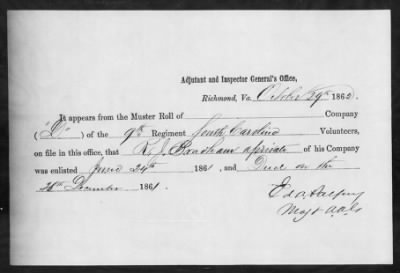 Adjutant and Inspector General's Office,
Richmond, Va. October 29th 1862.
It appears from the Muster Roll of Company
("D") of the 9th Regiment South Carolina Volunteers,
on file in this office, that R. J. Bradham a private of his Company
was enlisted June 24th 1861, and Died on the
26th December 1861.
Ed A.
Maj & A.A.G.